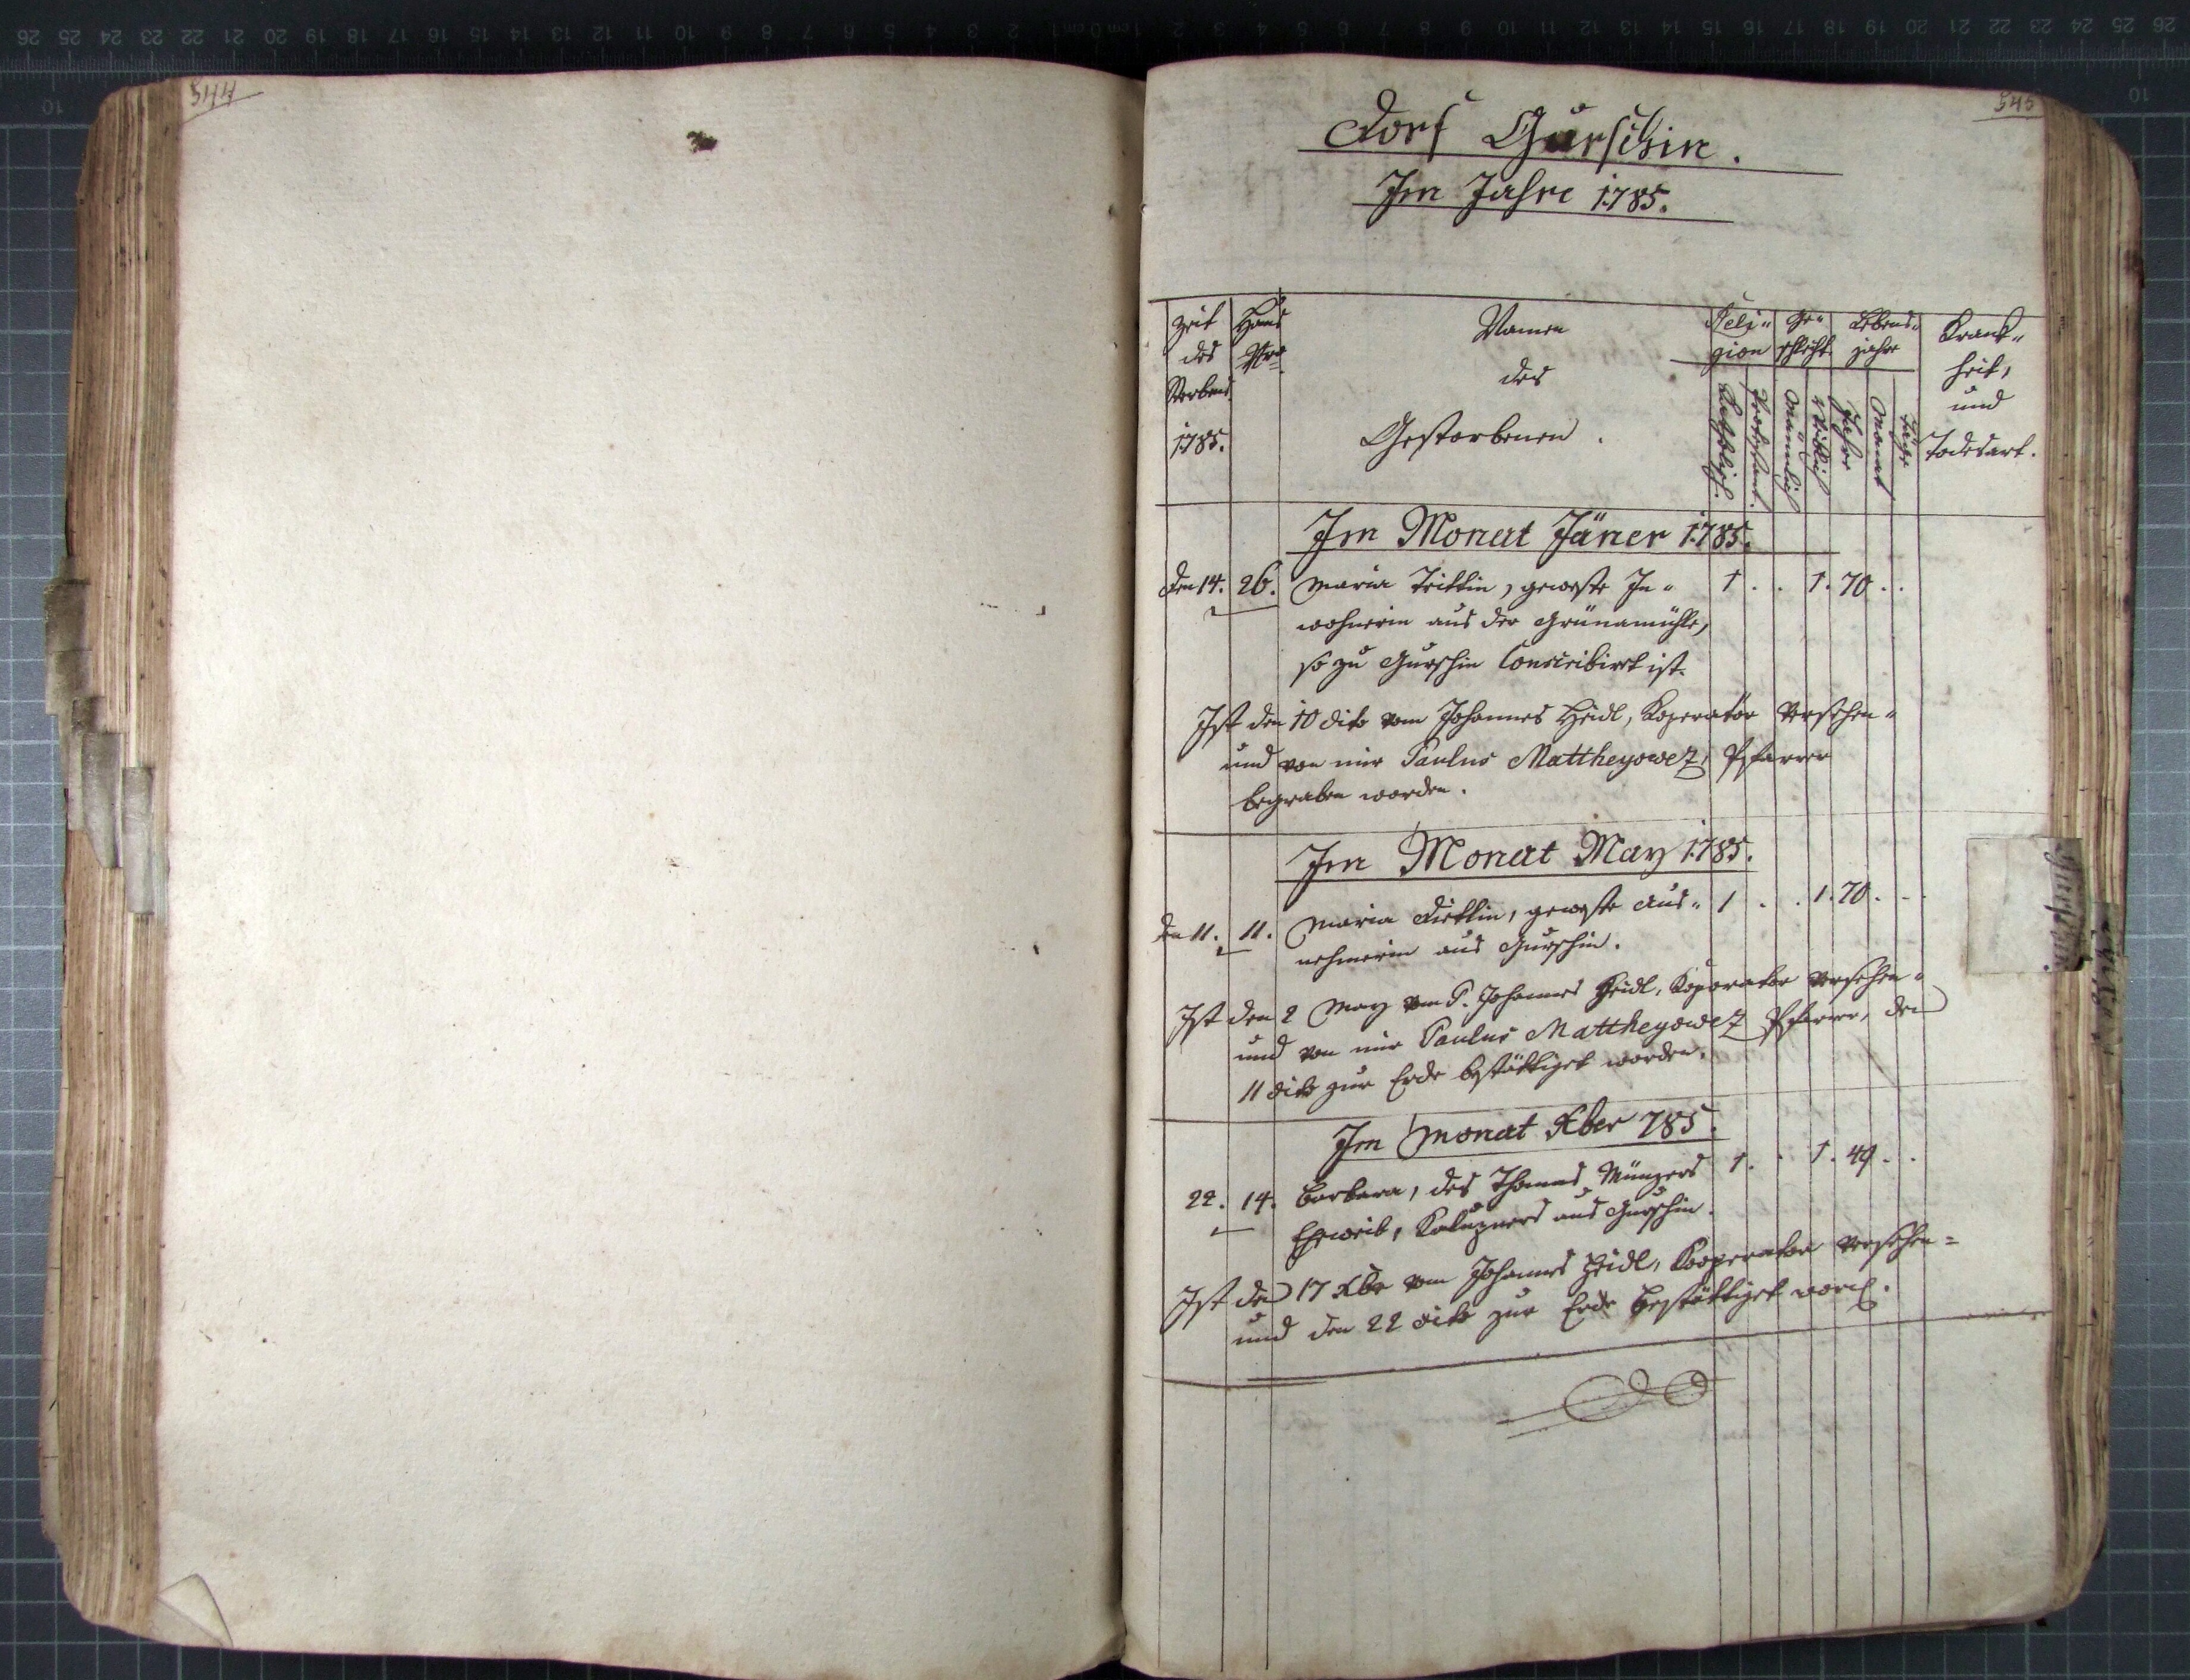 544
545
Dorf Gurschin.
Im Jahre 1785.
Zeit des Sterbens 1785.
Haus Nro
Namen des Gestorbenen.
Religion
Katholisch.
Protestant.
Geschlecht
Männlich
Weiblich
Lebensjahre
Jahre
Monat
Täge
Krankheit, und Todesart.
Im Monat Jäner 1785.
den 14. 26. Maria Trittlin, geweste In= 1 . . 1. 70 . .
wohnerin aus der Grünamühle,
so zu Gurschin Conscribirt ist.
Ist den 10 dito vom Johannes Heidl, Koperator versehen=
und von mir Paulus Mattheyowez, Pfarrer
begraben worden.
Im Monat May 1785.
den 11. 11. Maria Dietlin, geweste Aus= 1 . . 1. 70 . .
nehmerin aus Gurschin.
Ist den 2 May vom P. Johannes Heidl, Koporator versehen=
und von mir Paulus Mattheyowez Pfarrer, den
11 dito zur Erde bestättiget worden.
Im Monat Xber 785.
22. 14. Barbara, des Thomas Münzers 1 . . 1. 49 . .
Eheweib, aus Gurschin.
Ist den 17 Xber vom Johannes Heidl, Kooperator versehen=
und den 22 dito zur Erde bestättiget word.
Gurschin.